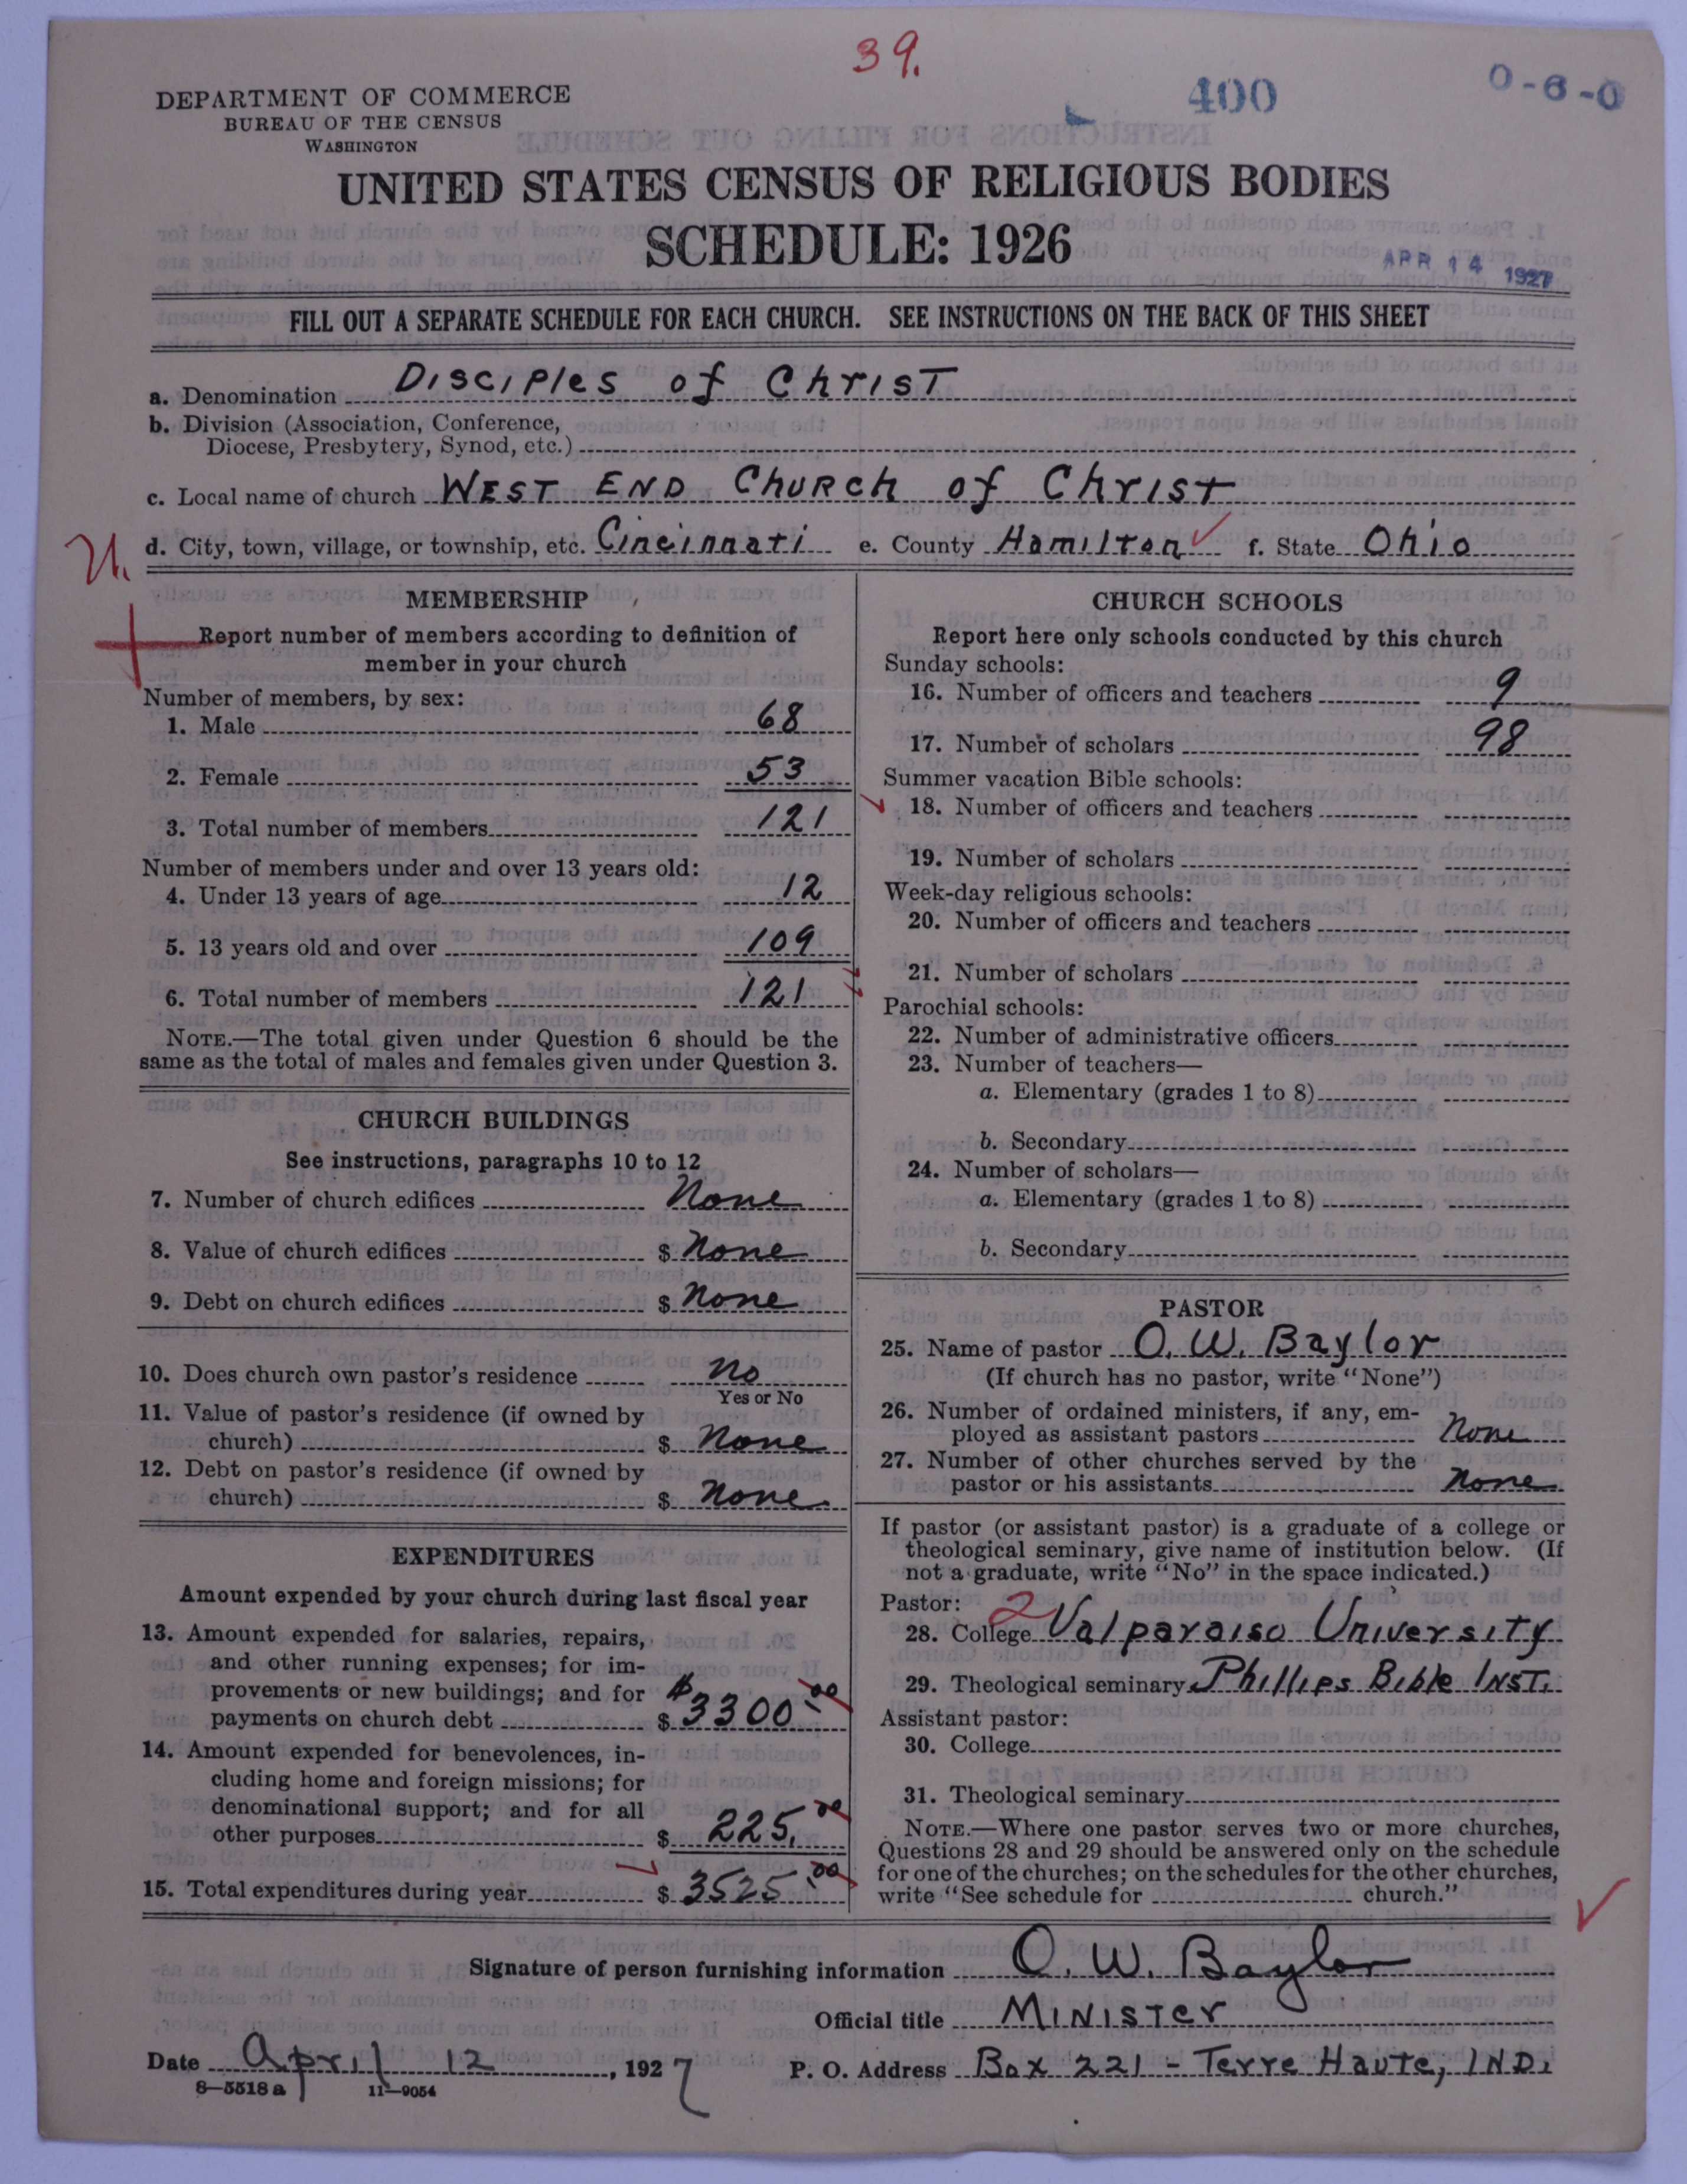 39.
400
0-6-0
DEPARTMENT OF COMMERCE
BUREAU OF THE CENSUS
WASHINGTON
UNITED STATES CENSUS OF RELIGIOUS BODIES
SCHEDULE: 1926
APR 14 1927
FILL OUT A SEPARATE SCHEDULE FOR EACH CHURCH. SEE INSTRUCTIONS ON THE BACK OF THIS SHEET
a. Denomination Disciples of Christ
b. Division (Association, Conference,
Diocese, Presbytery, Synod, etc.)
c. Local name of church WEST END Church of Christ
d. City, town, village, or township, etc. Cincinnati e. County Hamilton f. State Ohio
MEMBERSHIP
Report number of members according to definition of
member in your church
Number of members, by sex:
1. Male 68
2. Female 53
3. Total number of members 121
Number of members under and over 13 years old:
4. Under 13 years of age 12
5. 13 years old and over 109
6. Total number of members 121
NOTE.—The total given under Question 6 should be the
same as the total of males and females given under Question 3.
CHURCH BUILDINGS
See instructions, paragraphs 10 to 12
7. Number of church edifices None
8. Value of church edifices $ None
9. Debt on church edifices $ None
10. Does church own pastor's residence No
Yes or No
11. Value of pastor's residence (if owned by
church) $ None
12. Debt on pastor's residence (if owned by
church) $ None
EXPENDITURES
Amount expended by your church during last fiscal year
13. Amount expended for salaries, repairs,
and other running expenses; for im-
provements or new buildings; and for
payments on church debt $ $3300.00
14. Amount expended for benevolences, in-
cluding home and foreign missions; for
denominational support; and for all
other purposes $ 225.00
15. Total expenditures during year $ 3525.00
CHURCH SCHOOLS
Report here only schools conducted by this church
Sunday schools:
16. Number of officers and teachers 9
17. Number of scholars 98
Summer vacation Bible schools:
18. Number of officers and teachers
19. Number of scholars
Week-day religious schools:
20. Number of officers and teachers
21. Number of scholars
Parochial schools:
22. Number of administrative officers
23. Number of teachers—
a. Elementary (grades 1 to 8)
b. Secondary
24. Number of scholars—
a. Elementary (grades 1 to 8)
b. Secondary
PASTOR
25. Name of pastor O. W. Baylor
(If church has no pastor, write "None")
26. Number of ordained ministers, if any, em-
ployed as assistant pastors None
27. Number of other churches served by the
pastor or his assistants None
If pastor (or assistant pastor) is a graduate of a college or
theological seminary, give name of institution below. (If
not a graduate, write "No" in the space indicated.)
Pastor: 2
28. College Valparaiso University
29. Theological seminary Phillips Bible INST.
Assistant pastor:
30. College
31. Theological seminary
NOTE.—Where one pastor serves two or more churches,
Questions 28 and 29 should be answered only on the schedule
for one of the churches; on the schedules for the other churches,
write "See schedule for church."
Signature of person furnishing information O. W. Baylor
Official title MINISTer
Date April 12, 1927 P. O. Address Box 221 - Terre Haute, IND.
8—5518 a 11—9054